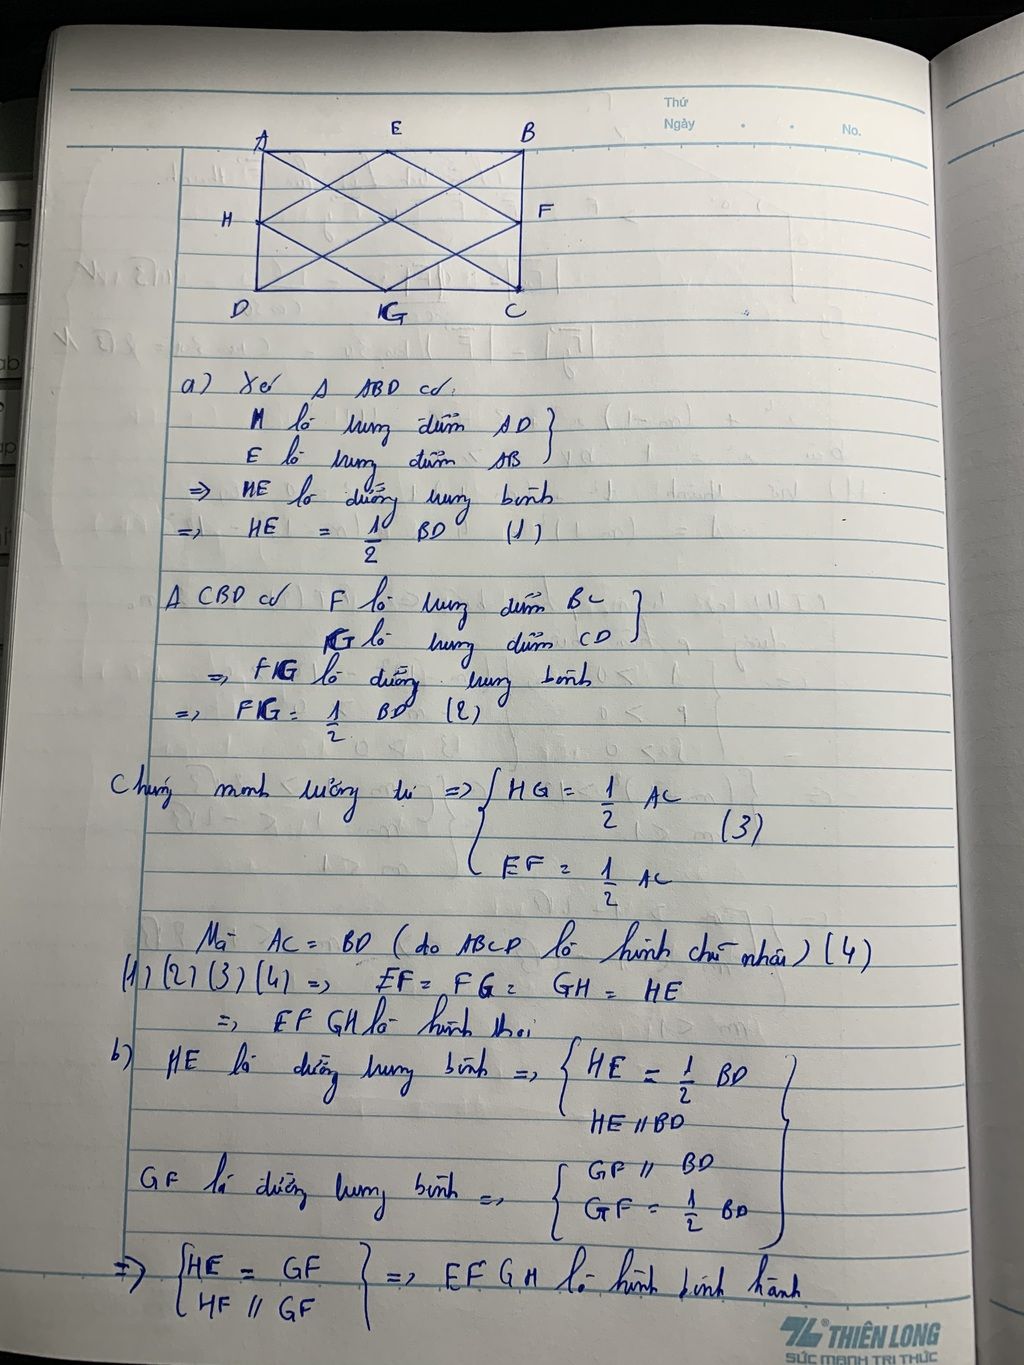 Thứ
Ngày . . No.
A E B
H F
D G C
a) Xét Δ ABD có:
H là trung điểm AD
E là trung điểm AB
=> HE là đường trung bình
=> HE = 1/2 BD (1)
Δ CBD có F là trung điểm BC
G là trung điểm CD
=> FG là đường trung bình
=> FG = 1/2 BD (2)
Chứng minh tương tự => { HG = 1/2 AC
(3)
EF = 1/2 AC
Mà AC = BD (do ABCD là hình chữ nhật) (4)
(1) (2) (3) (4) => EF = FG = GH = HE
=> EFGH là hình thoi
b) HE là đường trung bình => { HE = 1/2 BD
HE // BD
GF // BD
GF là đường trung bình => { GF = 1/2 BD
=> { HE = GF
HF // GF } => EFGH là hình bình hành
TL THIÊN LONG
SỨC MẠNH TRI THỨC